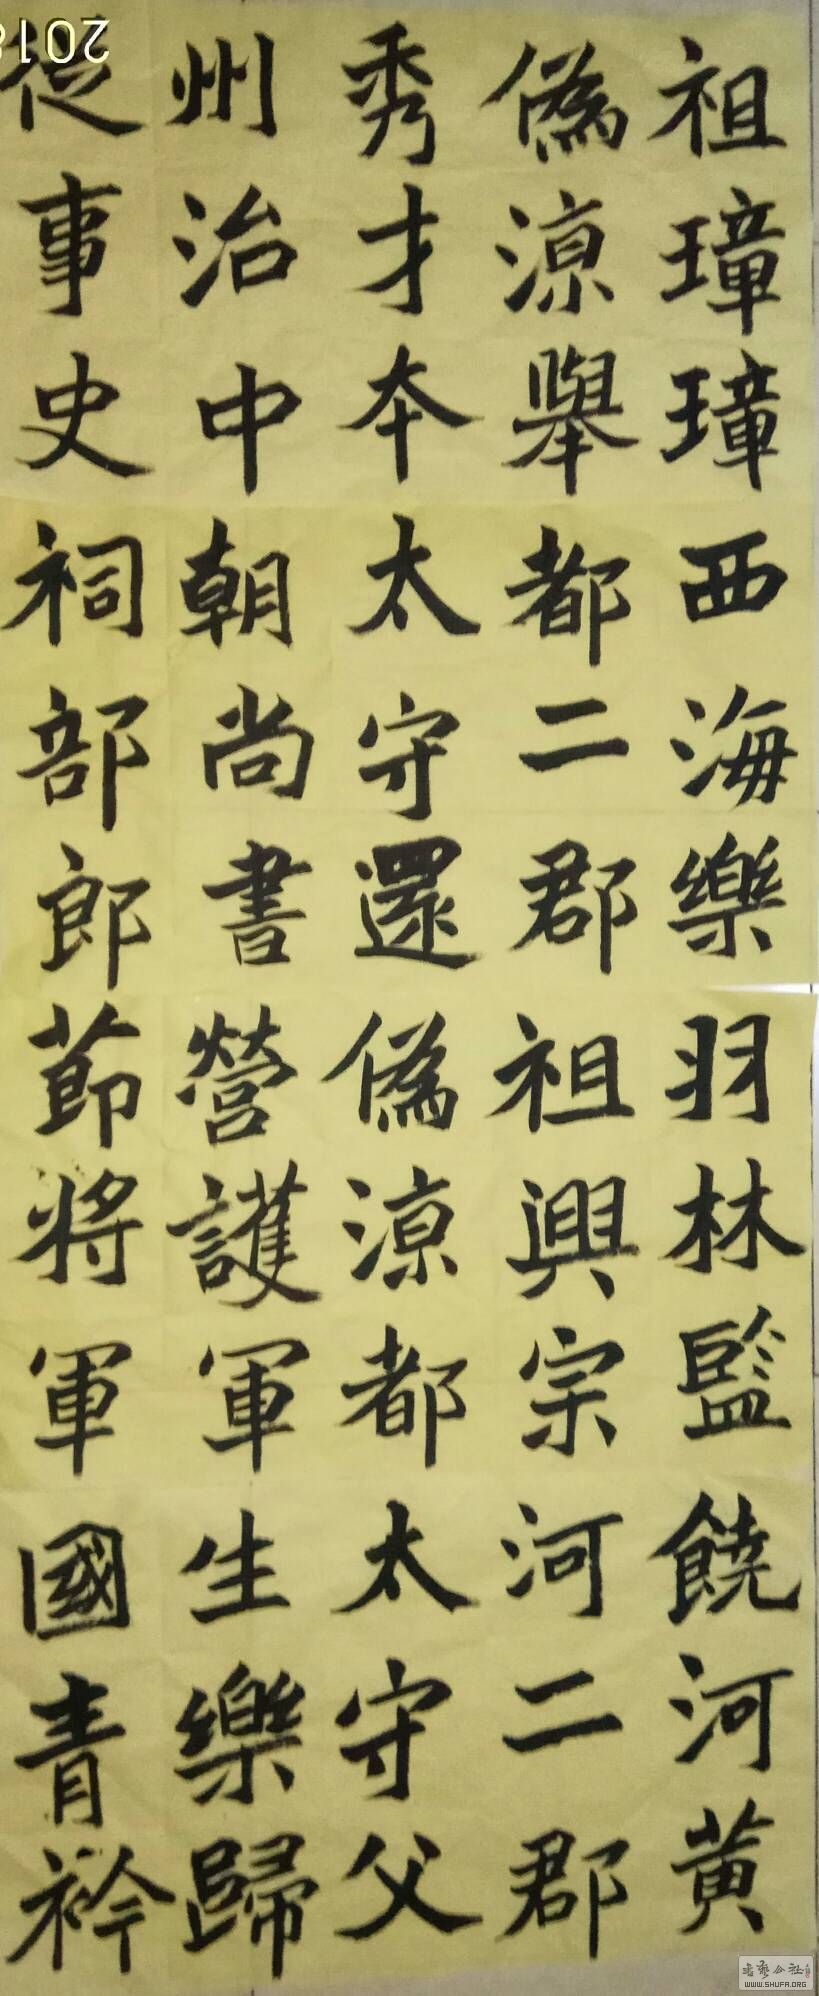 祖璋璋西海樂羽林監饒河黃
偽涼舉都二郡祖興宗河二郡
秀才本太守還偽涼都太守父
州治中朝尚書營護軍生樂歸
從事史祠部郎節將軍國青衿
WWW.SHUFA.ORG